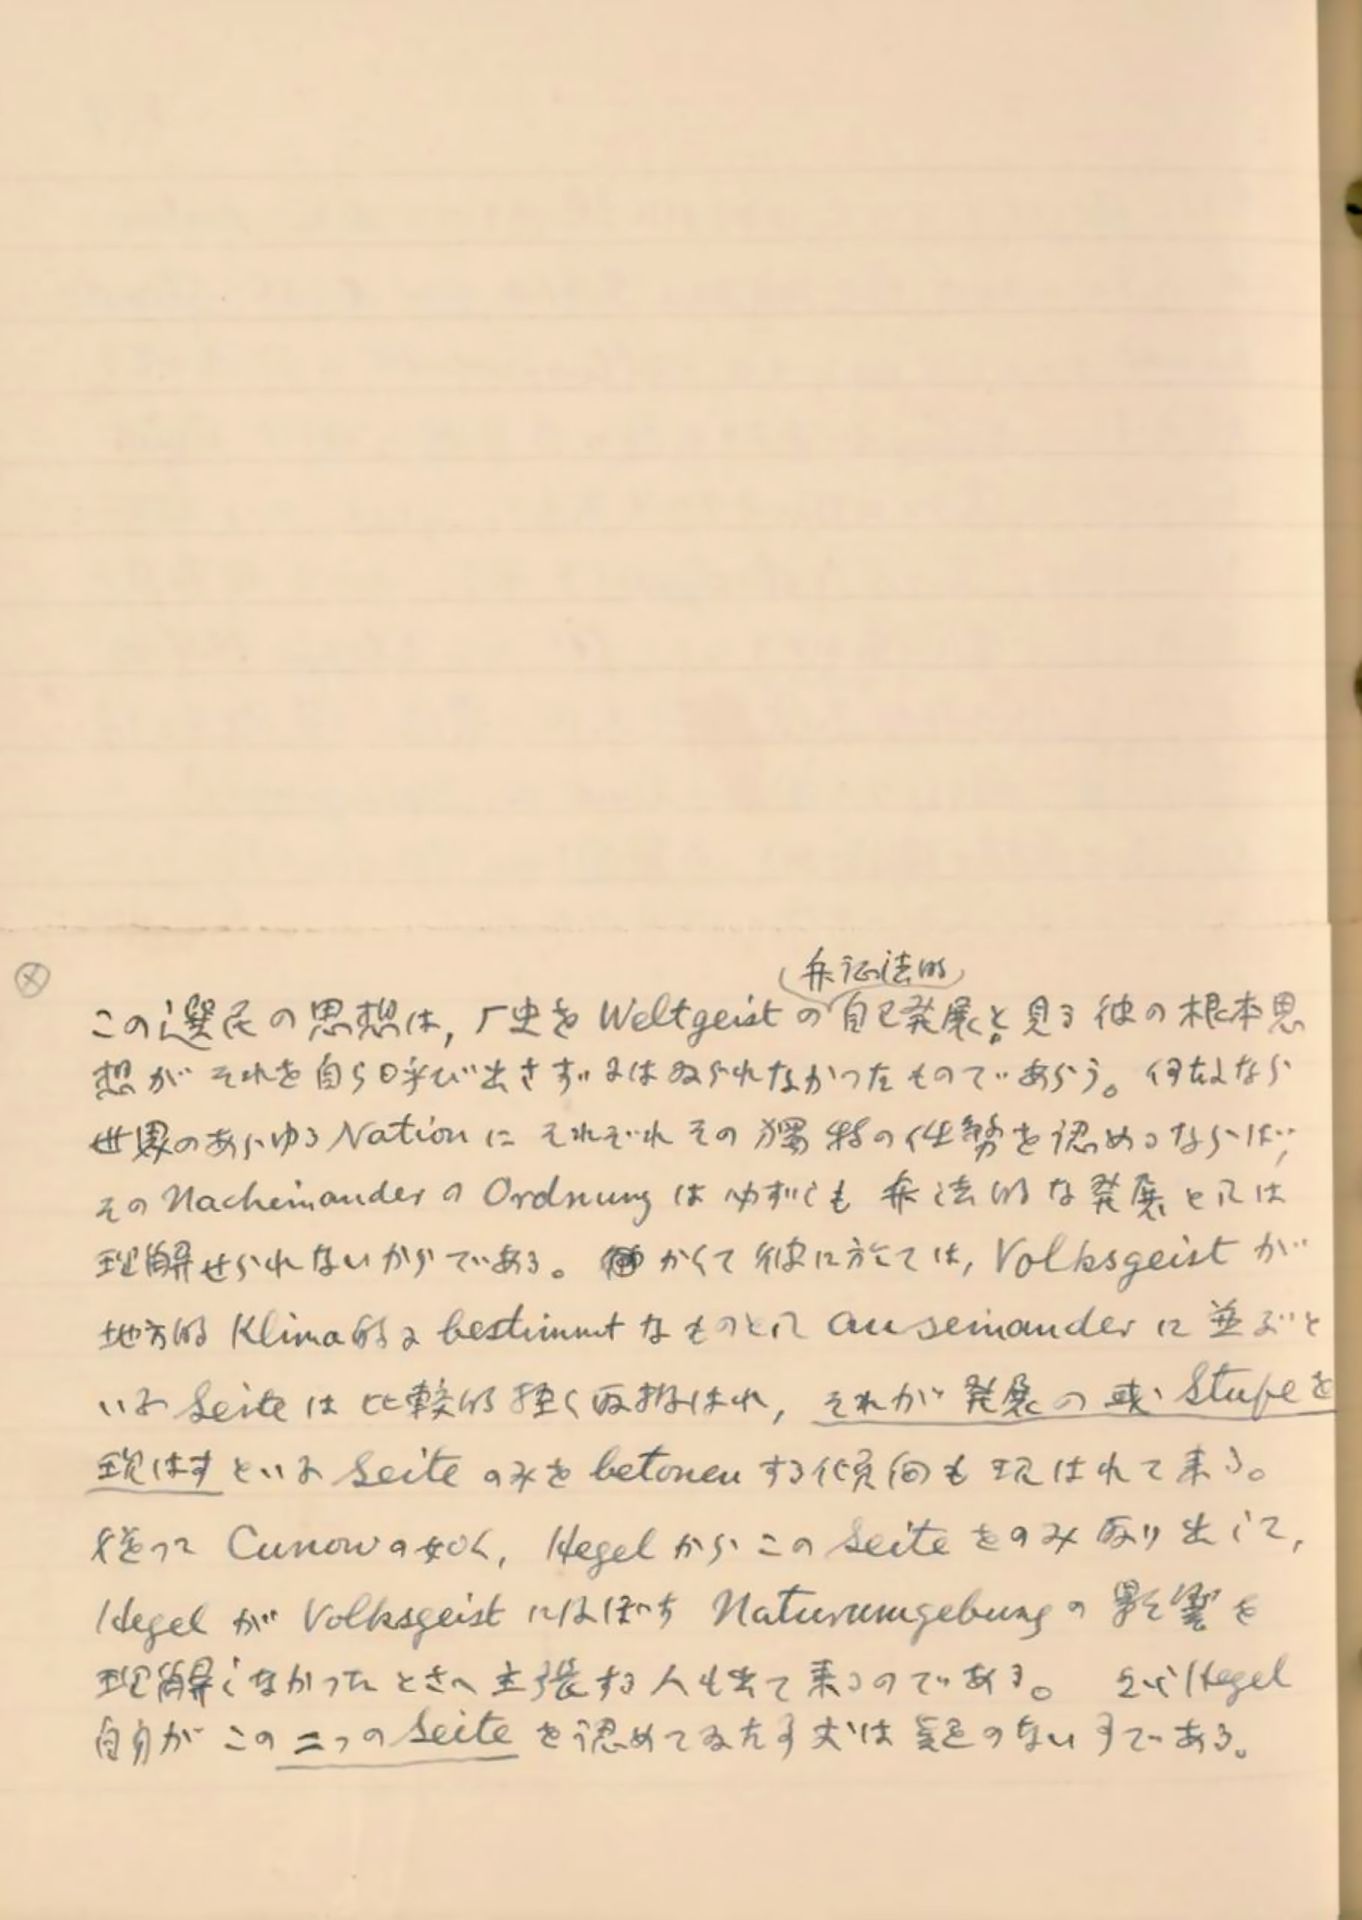 弁証法的
この選民の思想は, 厂史を Weltgeist の自己発展と見る彼の根本思
想がそれを自ら呼び出さずにはゐられなかったものであらう。何故なら
世界のあらゆる Nation にそれぞれその獨特の任務を認めるならば,
その Nacheinander の Ordnung は必ずしも弁法的な発展としては
理解せられないからである。かくて彼に於ては, Volksgeist が
地方的 Klima的に bestimmt なものとして auseinander に並ぶと
いふ Seite は比較的軽く取扱はれ, それが発展の或 Stufe を
現はすといふ Seite のみを betonen する傾向も現はれて来る。
従って Cunow の如く, Hegel からこの Seite をのみ取り出して,
Hegel が Volksgeist に Naturumgebung の影響を
理解しなかったとさへ主張する人も出て来るのである。 Hegel
自身がこの二つの Seite を認めてゐた事丈は疑のない事である。